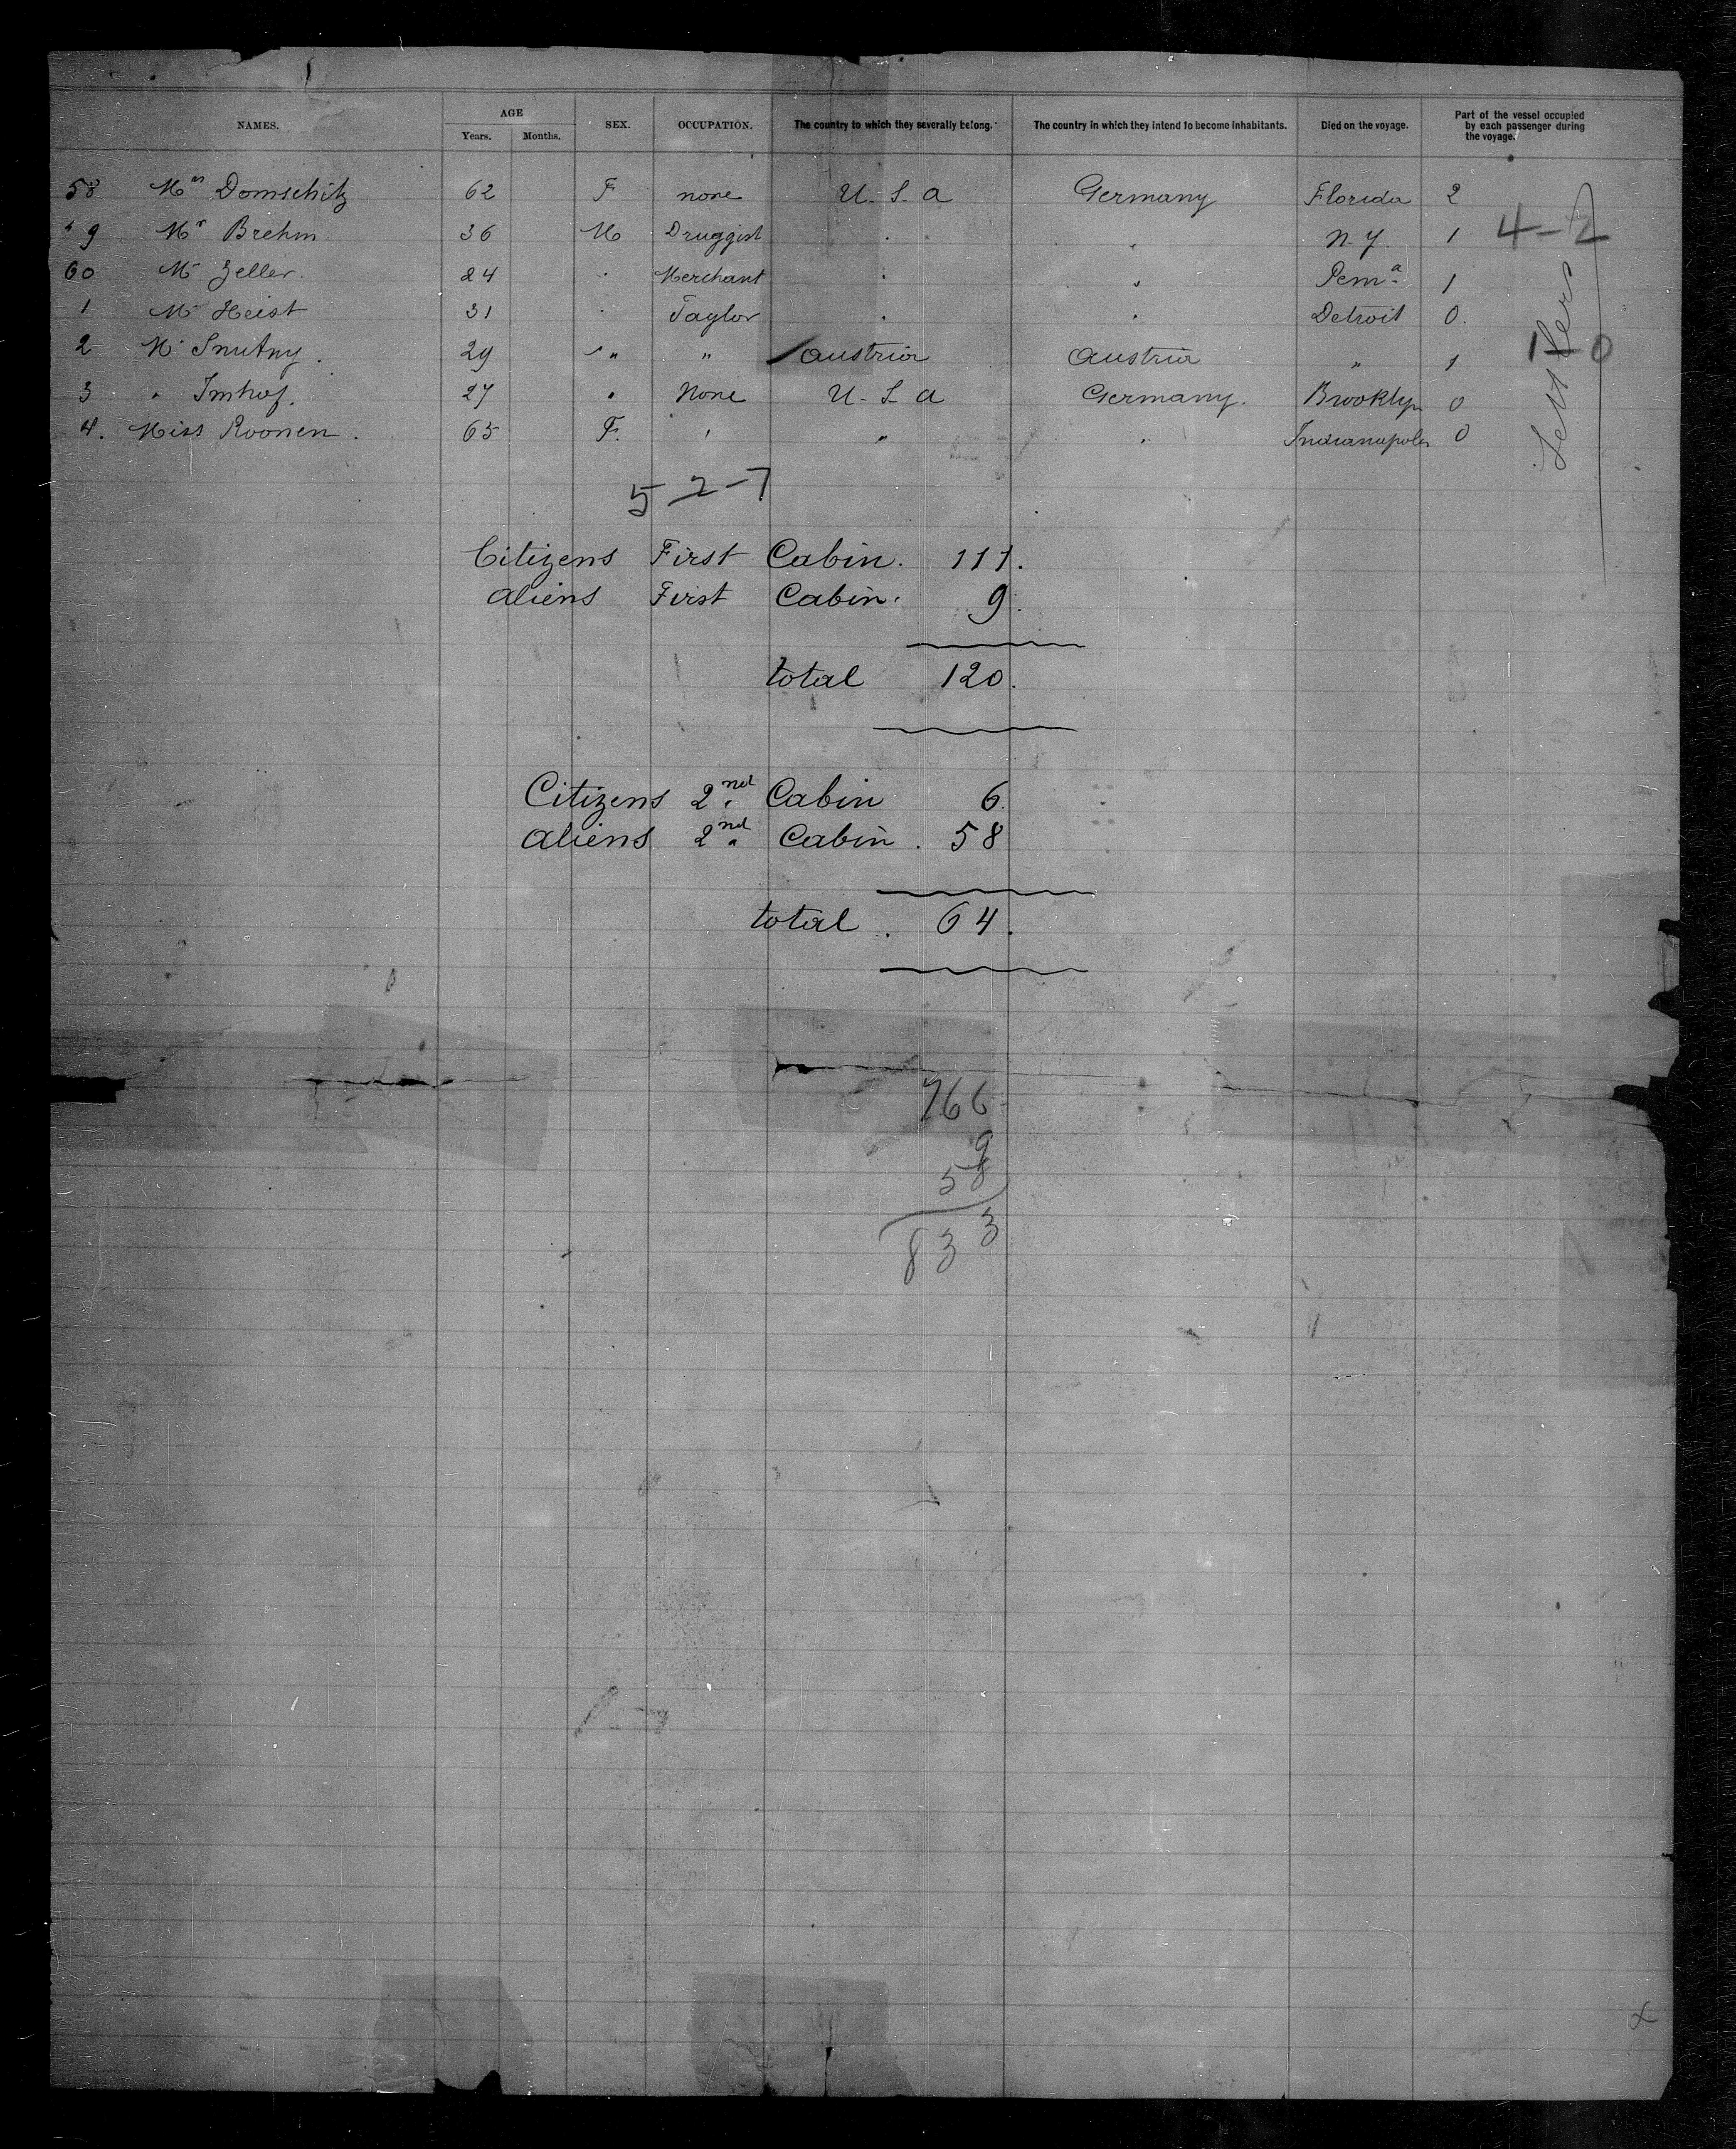 NAMES. AGE Years. Months. SEX. OCCUPATION. The country to which they severally belong. The country in which they intend to become inhabitants. Died on the voyage. Part of the vessel occupied by each passenger during the voyage.
58 Mrs Domschitz 62 F none U. S. A Germany Florida 2
" 9 Mr Brehm 36 M Druggist " " N. Y. 1 4-2
60 Mr Zeller. 24 " Merchant " " 1
1 Mr Heist 31 " Taylor " " Detroit 0.
2 29 " " Austria Austria " 1 1-0
3 " Imhof. 27 " None U. S. A Germany. Brooklyn 0
4. Miss Roonen. 65 F. " " " Indianapolis 0
5 2-7
Citizens First Cabin. 111.
Aliens First Cabin. 9.
total 120.
Citizens 2nd Cabin 6.
Aliens 2nd Cabin. 58
total. 64.
766
9
58
833